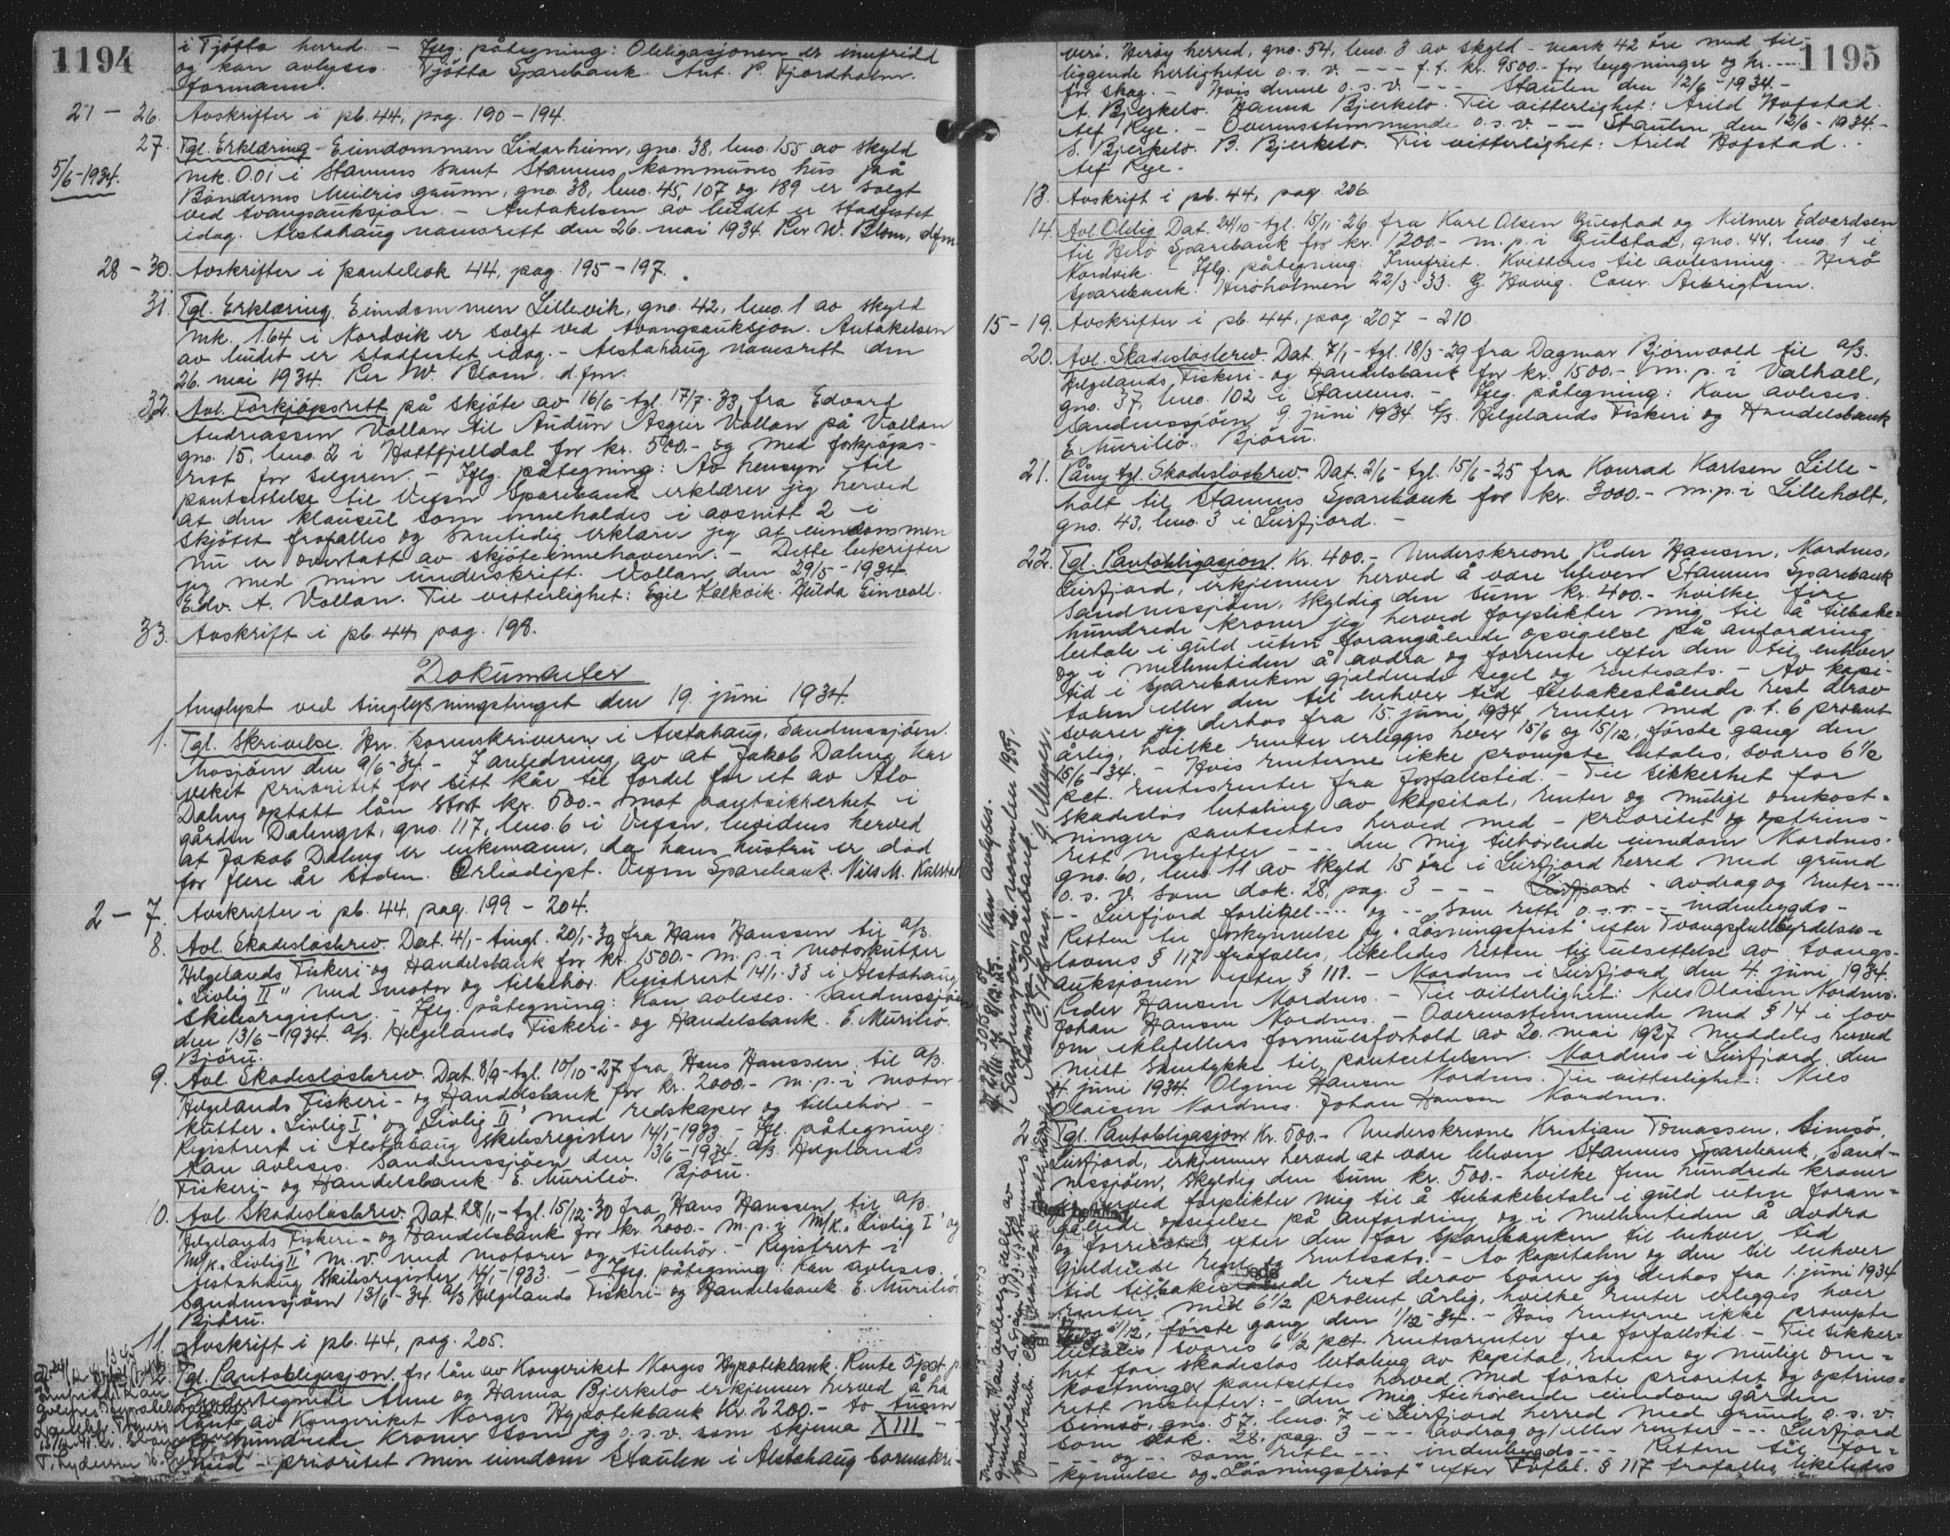 1194
i Tjøtta herred. - Iflg. påtegning: Obligasjonen er innfridd
og kan avlyses. Tjøtta Sparebank. Ant. P. Fjordholm.
formann.
21 - 26. Avskrifter i pb. 44, pag. 190 - 194.
27. Tgl. Erklæring. Eiendommen Lidarheim, gno. 38, bno. 155 av skyld
5/6-1934. mrk. 0.01 i Stamnes samt Stamnes kommunes hus på
Bøndernes grunn, gno. 38, bno. 45, 107 og 189 er solgt
ved tvangsauksjon. - Antakelsen av budet er stadfestet
idag. Alstahaug namsrett den 26. mai 1934. Per W. Blom, dfm.
28 - 30. Avskrifter i pantebok 44, pag. 195 - 197.
31. Tgl. Erklæring. Eiendommen Lillevik, gno. 42, bno. 1 av skyld
mrk. 1.64 i Nordvik er solgt ved tvangsauksjon. Antakelsen
av budet er stadfestet idag. - Alstahaug namsrett den
26. mai 1934. Per W. Blom. d.fm.
32. Avl. Forkjøpsrett på skjøte av 16/6 - tgl. 17/7-33 fra Edvard
Andreassen Vollan til Audun Asgeir Vollan på Vollan
gno. 15, bno. 2 i Hattfjelldal for kr. 500.- og med forkjøps-
rett for selgeren. - Iflg. påtegning: Av hensyn til
pantsettelse til Vefsn Sparebank erklærer jeg herved
at den klausul som inneholdes i avsnitt 2 i
skjøtet frafalles og samtidig erklærer jeg at eiendommen
nu er overtatt av skjøteinnehaveren. - Dette bekrefter
jeg med min underskrift. Vollan den 29/5 - 1934.
Edv. A. Vollan. Til vitterlighet: Egil Kalkvik. Hulda Einvoll.
33. Avskrift i pb. 44, pag. 198.
Dokumenter
tinglyst ved tinglysningstinget den 19. juni 1934.
1. Tgl. Skrivelse. Hr. Sorenskriveren i Alstahaug, Sandnessjøen.
Mosjøen den 9/6-34. - I anledning av at Jakob Daling har
veket prioritet for sitt kår til fordel for et av Alv
Daling optatt lån stort kr. 500.- mot pantsikkerhet i
gården Dalenget, gno. 117, bno. 6 i Vefsn, bevidnes herved
at Jakob Daling er enkemann, da hans hustru er død
for flere år siden. Ærbødigst. Vefsn Sparebank. Nils M. Kulstad
2 - 7. Avskrifter i pb. 44, pag. 199 - 204.
8. Avl. Skadesløsbrev. Dat. 4/1 - tingl. 20/1-30 fra Hans Hanssen til A/S.
Helgelands Fiskeri- og Handelsbank for kr. 1500.- m. p. i motorkutter
"Livlig II" med motor og tilbehør. Registrert 14/1-33 i Alstahaug
skibsregister. - Iflg. påtegning: Kan avleses. Sandnessjøen
den 13/6 - 1934. A/S. Helgelands Fiskeri- og Handelsbank. E. Muribø.
Bjøru.
9. Avl. Skadesløsbrev. Dat. 8/9 - tgl. 10/10-27 fra Hans Hanssen til A/S.
Helgelands Fiskeri- og Handelsbank for kr. 2000.- m. p. i motor-
kutter "Livlig I" og "Livlig II" med redskaper og tilbehør -
Registrert i Alstahaug skibsregister 14/1-1933 - Ifl. påtegning:
Kan avleses. Sandnessjøen den 13/6-1934. A/S. Helgelands
Fiskeri- og Handelsbank. E. Muribø. Bjøru.
10. Avl. Skadesløsbrev. Dat. 28/11 - tgl. 15/12-30 fra Hans Hanssen til A/S.
Helgelands Fiskeri- og Handelsbank for kr. 2000.- m. p. i M/K. "Livlig I" og
M/K. "Livlig II" m. v. med motorer og tilbehør. - Registrert i
Alstahaug skibsregister 14/1-1933. - Iflg. påtegning: Kan avleses.
Sandnessjøen 13/6-34. A/S Helgelands Fiskeri- og Handelsbank. E. Muribø.
Bjøru.
11. Avskrift i pb. 44, pag. 205.
Tgl. Pantobligasjon for lån av Kongeriket Norges Hypotekbank. Rente 5 pct. p.
Undertegnede Arne og Hanna Bjerkelo erkjenner herved å ha
lånt av Kongeriket Norges Hypotekbank Kr. 2200.- to tusen
to hundrede kroner som jeg o. s. v. som skjema XIII - -
med - prioritet min eiendom Staulen i Alstahaug sorenskri-
1195
veri. Herøy herred, gno. 54, bno. 3 av skyld - mark 42 øre med til-
liggende herligheter o. s. v. - - - f. t. kr. 9500.- for bygninger og kr. ---
for skog. - Hvis denne o. s. v. - - - Staulen den 12/6-1934. -
A. Bjerkelo. Hanna Bjerkelo. Til vitterlighet: Arild Hofstad.
Alf Rye. - Overensstemmende o. s. v. - - Staulen den 12/6 - 1934. -
S. Bjerkelo. B. Bjerkelo. Til vitterlighet: Arild Hofstad.
Alf Rye.
13. Avskrift i pb. 44, pag. 206.
14. Avl. Oblig. Dat. 24/10 - tgl. 15/11-26 fra Karl Olsen Gulstad og Hilmer Edvardsen
til Herø Sparebank for kr. 1200.- m. p. i Gulstad, gno. 44, bno. 1 i
Nordvik. - Iflg. påtegning: Innfriet. Kvitteres til avlesning. Herø
Sparebank. Herøholmen 22/3-33. G. Havig. Conr. Albrigtsen.
15 - 19. Avskrifter i pb. 44, pag. 207 - 210.
20. Avl. Skadesløsbrev. Dat. 7/1 - tgl. 18/3-29 fra Dagmar Bjørnvold til A/S.
Helgelands Fiskeri- og Handelsbank for kr. 1500.- m. p. i Valhall,
gno. 37, bno. 102 i Stamnes. - Iflg. påtegning: Kan avleses.
Sandnessjøen 9. juni 1934. A/S. Helgelands Fiskeri og Handelsbank
E. Muribø. Bjøru.
21. Påny tgl. Skadesløsbrev. Dat. 2/6 - tgl. 15/6-25 fra Konrad Karlsen Lille-
holt til Stamnes Sparebank for kr. 3000.- m. p. i Lilleholt,
gno. 43, bno. 3 i Leirfjord. -
22. Tgl. Pantobligasjon. Kr. 400.- Underskrevne Peder Hansen, Nordnes,
Leirfjord, erkjenner herved å være bleven Stamnes Sparebank
Sandnessjøen, skyldig den sum kr. 400.- hvilke fire
hundrede kroner jeg herved forplikter mig til å tilbake-
betale i guld uten forangående opsigelse på anfordring
og i mellemtiden å avdra og forrente efter den til enhver
tid i Sparebanken gjeldende regel og rentesats. - Av kapi-
talen eller den til enhver tid tilbakestående rest derav
svarer jeg derhos fra 15. juni 1934 renter med p. t. 6 procent
årlig, hvilke renter erlegges hver 15/6 og 15/12, første gang den
15/6-34. - Hvis renterne ikke prompte betales, svares 6 1/2
pct. rentesrenter fra forfallstid. - Til sikkerhet for
skadesløs betaling av kapital, renter og mulige omkost-
ninger pantsettes herved med - prioritet og optrins-
rett nestefter - - - den mig tilhørende eiendom Nordnes.
gno. 60, bno. 11 av skyld 15 øre i Leirfjord herred med grund
o. s. v. som dok. 28, pag. 3 - - - Leirfjord - avdrag og renter ---
-- Leirfjord forlikel---- og -- som rette o. s. v. -- innenbygds-
Retten til forkynnelse og "Løsningsfrist" efter Tvangsfullbyrdelses-
lovens § 117 frafalles, likeledes retten til utsettelse av tvangs-
auksjonen efter § 118. - Nordnes i Leirfjord, den 4. juni 1934.
Peder Hansen Nordnes. - Til vitterlighet: Nils Olaisen Nordnes.
Johan Hansen Nordnes. - Overensstemmende med § 14 i lov
om ektefellers formuesforhold av 20. mai 1927 meddeles herved
mitt samtykke til pantsettelsen. Nordnes i Leirfjord, den
4. juni 1934. Olgine Hansen Nordnes. Til vitterlighet: Nils
Olaisen Nordnes. Johan Hansen Nordnes.
Tgl. Pantobligasjon. Kr. 500.- Underskrevne Kristian Tomassen, Simsø,
Leirfjord, erkjenner herved at være bleven Stamnes Sparebank, Sand-
nessjøen, skyldig den sum kr. 500.- hvilke fem hundrede kroner
jeg herved forplikter mig til å tilbakebetale i guld uten foran-
gående opsigelse på anfordring og i mellemtiden å avdra
og forrente efter den for Sparebanken til enhver tid
gjeldende regel og rentesats. - Av kapitalen og den til enhver
tid tilbakestående rest derav svarer jeg derhos fra 1. juni 1934
renter med 6 1/2 procent årlig, hvilke renter erlegges hver
1/12, første gang den 1/12-34. - Hvis renterne ikke prompte
betales svares 6 1/2 pct. rentesrenter fra forfallstid. - Til sikker-
het for skadesløs betaling av kapital, renter og mulige om-
kostninger pantsettes herved med første prioritet og optrins-
rett nestefter: - den mig tilhørende eiendom gården
Simsø, gno. 57, bno. 7 i Leirfjord herred med grund o. s. v.
som dok. 28, pag. 3 - - - avdrag og/eller renter - - - Leirfjord
- - - og - - som rette - - - innenbygds - - - Retten til for-
kynnelse og "Løsningsfrist" efter Tvfbl. § 117 frafalles, likeledes